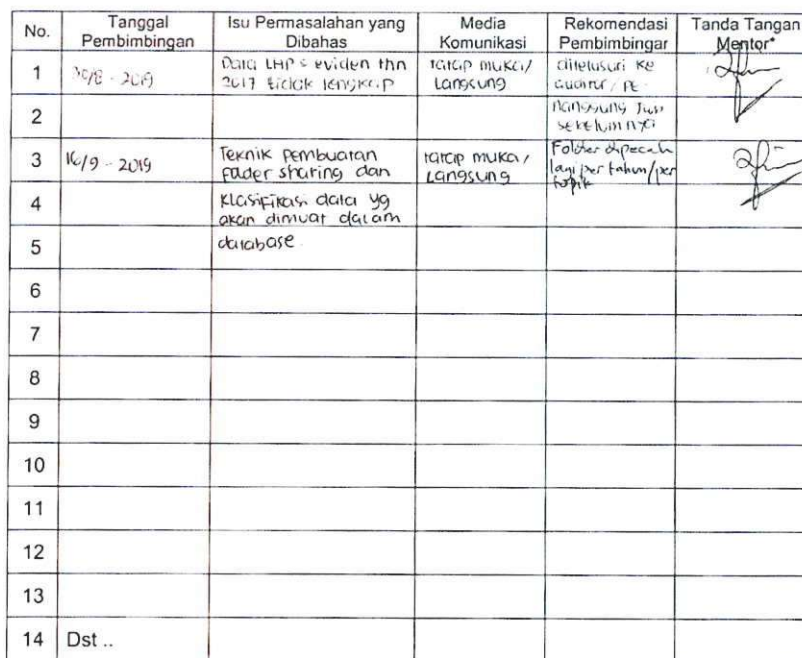 No.
Tanggal
Pembimbingan
Isu Permasalahan yang
Dibahas
Media
Komunikasi
Rekomendasi
Pembimbingan
Tanda Tangan
Mentor*
1
30/8 - 2019
Data LHP & eviden thn
2017 tidak lengkap
tatap muka/
Langsung
ditelusuri ke
auditor / PE
2
sebelumnya
3
16/9 - 2019
Teknik pembuatan
folder sharing dan
tatap muka/
Langsung
Folder dipecah
lagi per tahun/per
topik
4
klasifikasi data yg
akan dimuat dalam
5
database
6
7
8
9
10
11
12
13
14
Dst ..